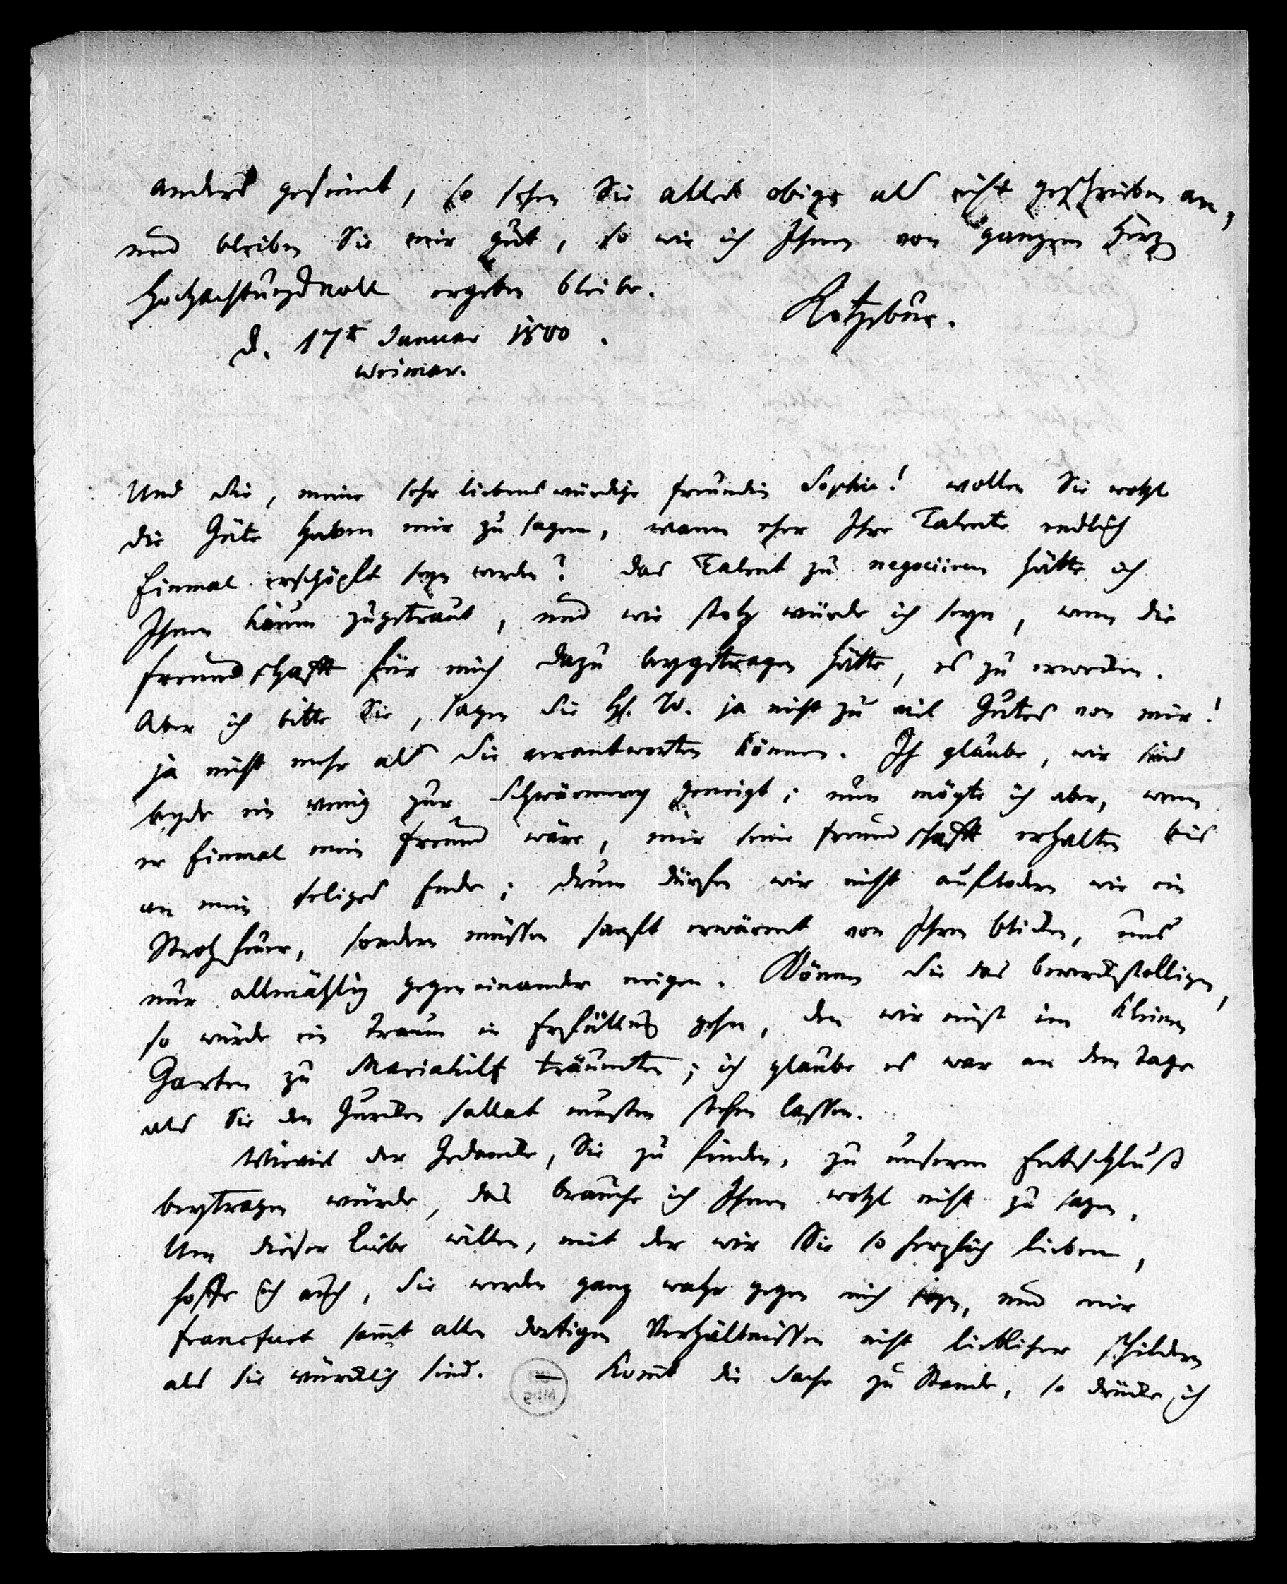 anders gesinnt, so sehen Sie alles obige als nicht geschrieben an,
und bleiben Sie mir gut, so wie ich Ihnen von ganzem Herz
Hochachtungsvoll ergeben bleibe.
Kotzebue.
d. 17t Januar 1800.
Weimar.
Und Sie, meine sehr liebenswürdige Freundin Sophie! wollen Sie wohl
die Güte haben mir zu sagen, wann eher Ihre Talente endlich
Einmal erschöpft seyn werden? das Talent zu negociiren hätte ich
Ihnen kaum zugetraut, und wie stolz würde ich seyn, wenn die
Freundschafft für mich dazu beygetragen hätte, es zu erwecken.
Aber ich bitte Sie, sagen Sie H. W. ja nicht zu viel Gutes von mir!
ja nicht mehr als Sie verantworten können. Ich glaube, wir sind
beyde ein wenig zur Schwärmerey geneigt; nun mögte ich aber, wenn
er Einmal mein Freund wäre, mir seine Freundschafft erhalten bis
an mein seliges Ende; drum dürfen wir nicht auflodern wie ein
Strohfeuer, sondern müssen sanft erwärmt von Ihren blicken, uns
nur allmählig gegen einander neigen. Können Sie das bewerckstelligen,
so würde ein Traum in Erfüllung gehn, den wir einst im kleinen
Garten zu Mariahilf träumten; ich glaube es war an dem Tage
als Sie den Gurcken sallat musten stehen lassen.
Wieviel der Gedancke, Sie zu finden, zu unserm Entschluß
beytragen würde, das brauche ich Ihnen wohl nicht zu sagen.
Um dieser Liebe willen, mit der wir Sie so herzlich lieben,
hoffe ich auch, Sie werden ganz wahr gegen mich seyn, und mir
Francfurt samt allen dortigen Verhältnissen nicht lieblicher schildern
als sie würcklich sind. — Komt die Sache zu Stande, so drücke ich